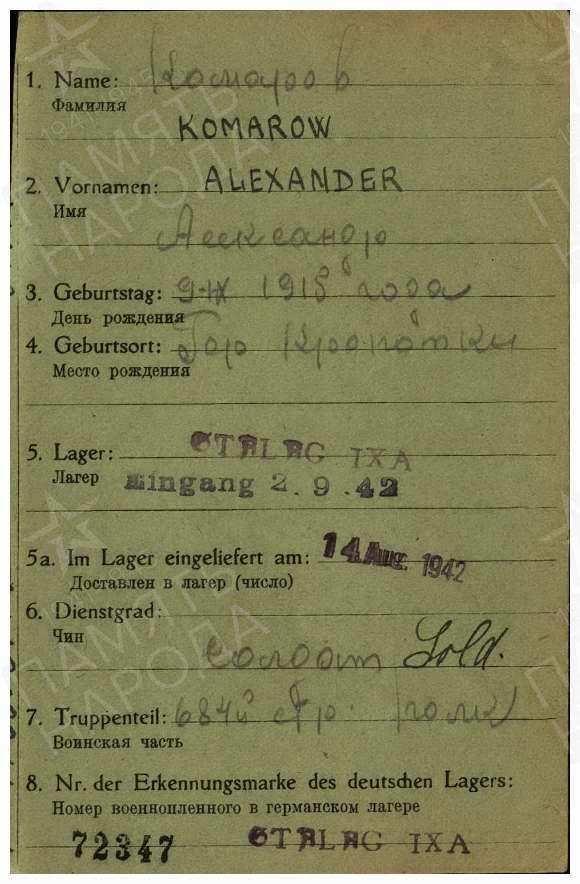 1. Name: Комаров
Фамилия
KOMAROW
2. Vornamen: ALEXANDER
Имя
Александр
3. Geburtstag: 9-IX 1918 года
День рождения
4. Geburtsort: Гор Кропотки
Место рождения
5. Lager: STALAG IXA
Лагер Eingang 2.9.42
5a. Im Lager eingeliefert am: 14. Aug. 1942
Доставлен в лагер (число)
6. Dienstgrad:
Чин
Солдат Sold.
7. Truppenteil: 684й стр. полк
Воинская часть
8. Nr. der Erkennungsmarke des deutschen Lagers:
Номер военнопленного в германском лагере
72347 STALAG IXA
ПАМЯТЬ
НАРОДА